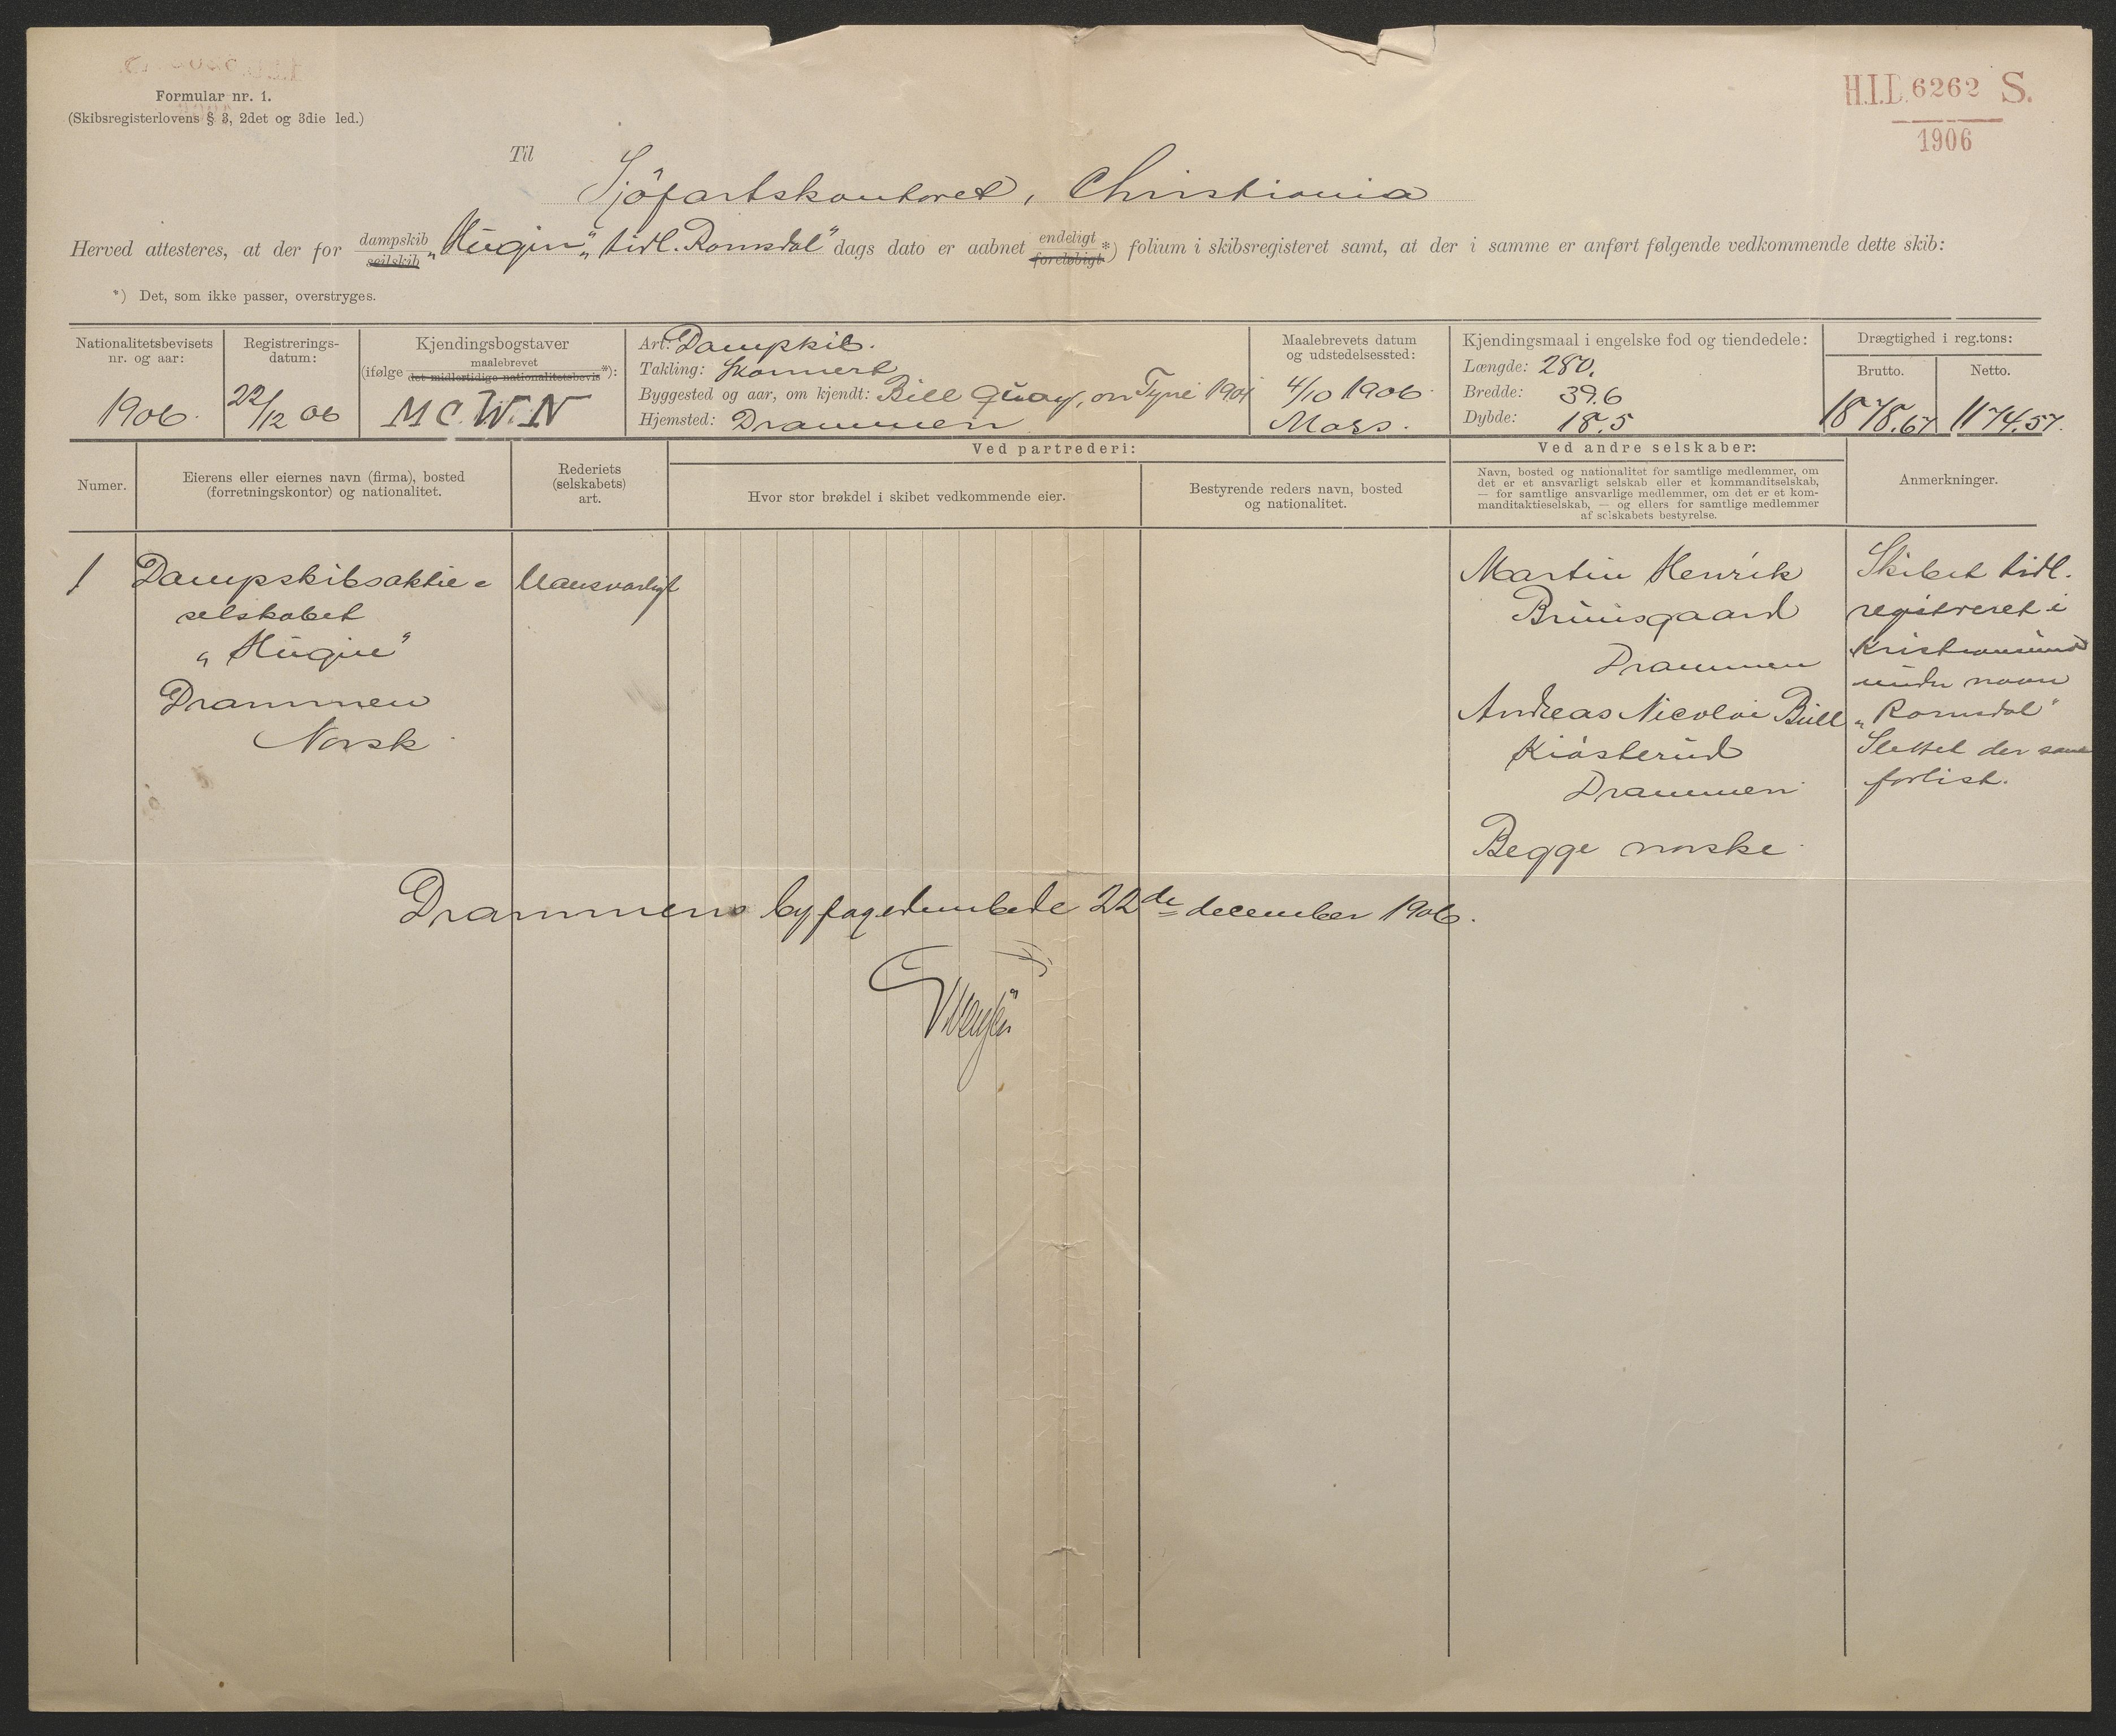 Formular nr. 1.
(Skibsregisterlovens § 3, 2det og 3die led.)
H.I.D. 6262 S.
1906
Til
Sjöfartskontoret, Christiania
Herved attesteres, at der for dampskib seilskib "Hugin", tidl. Romsdal" dags dato er aabnet endeligt foreløbigt *) folium i skibsregisteret samt, at der i samme er anført følgende vedkommende dette skib:
*) Det, som ikke passer, overstryges.
Nationalitetsbevisets nr. og aar:
1906.
Registreringsdatum:
22/12 06
Kjendingsbogstaver
(ifølge maalebrevet det midlertidige nationalitetsbevis *):
M C. W. N
Art: Dampskib.
Takling: Skonnert
Byggested og aar, om kjendt: Bill Quay, on Tyne 1901
Hjemsted: Drammen
Maalebrevets datum og udstedelsessted:
4/10 1906.
Moss.
Kjendingsmaal i engelske fod og tiendedele:
Længde: 280.
Bredde: 39.6
Dybde: 18.5
Drægtighed i reg.tons:
Brutto.
1878.67
Netto.
1174.57.
Numer.
Eierens eller eiernes navn (firma), bosted
(forretningskontor) og nationalitet.
Rederiets
(selskabets)
art.
Ved partrederi:
Hvor stor brøkdel i skibet vedkommende eier.
Bestyrende reders navn, bosted
og nationalitet.
Ved andre selskaber:
Navn, bosted og nationalitet for samtlige medlemmer, om
det er et ansvarligt selskab eller et kommanditselskab,
— for samtlige ansvarlige medlemmer, om det er et kom-
manditaktieselskab, — og ellers for samtlige medlemmer
af selskabets bestyrelse.
Anmerkninger.
1
Dampskibsaktie=
selskabet
"Hugin"
Drammen
Norsk
Uansvarligt
Martin Henrik
Bruusgaard
Drammen
Andreas Nicolai Bull
Kiøsterud
Drammen
Begge norske
Skibet tidl.
registreret i
Kristiansund
under navn
"Romsdal"
Slettet der som
forlist.
Drammens byfogedembede 22de december 1906.